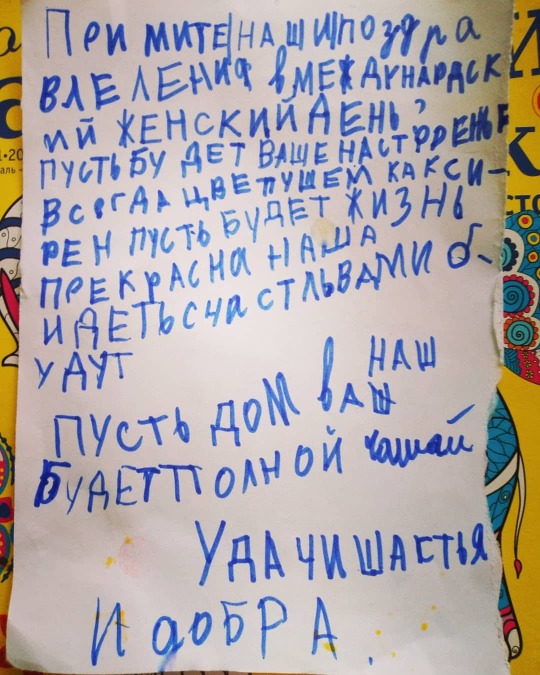 ПРИМИТЕ НАШИ ПОЗДРА
ВЛЕЛЕНИЯ В МЕЖДУНАРДСК
ИЙ ЖЕНСКИЙ ДЕНЬ?
ПУСТЬ БУДЕТ ВАШЕ НАСТРОЕНЬЕ
ВСЕГДА ЦВЕТУШЕМ КАК СИ-
РЕН ПУСТЬ БУДЕТ ЖИЗНЬ
ПРЕКРАСНА НАША
И ДЕТЬ СЧАСТЛЬВАМИ Б-
УДУТ
НАШ
ПУСТЬ ДОМ ВАШ
БУДЕТ ПОЛНОЙ чашай
УДАЧИ ШАСТЬЯ
И ДОБРА.